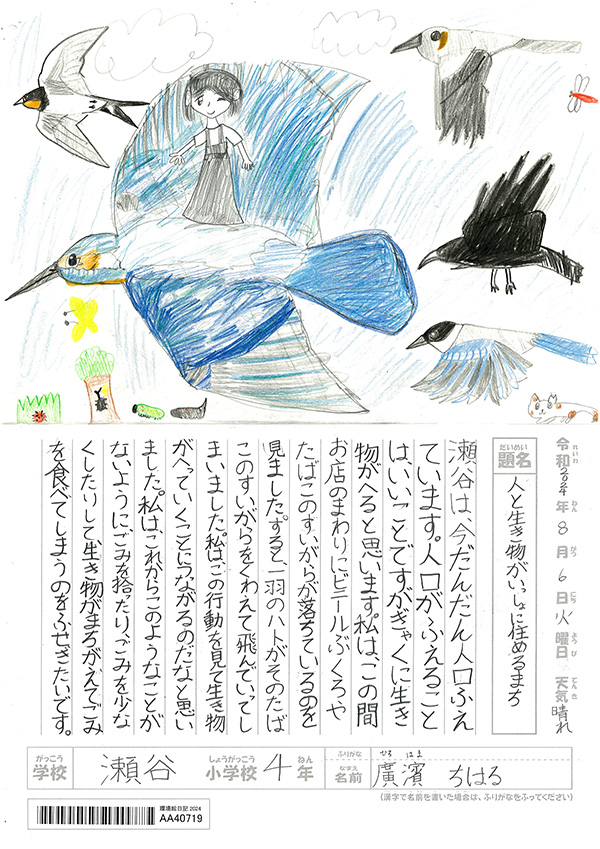 令和2024年8月6日火曜日 天気晴れ
れいわ ねん がつ にち ようび てんき
だいめい
題名
人と生き物がいっしょに住めるまち
瀬谷は、今だんだん人口ふえ
ています。人口がふえること
は、いいことですがぎゃくに生き
物がへると思います。私は、この間
お店のまわりにビニールぶくろや
たばこのすいがらが落ちているのを
見ました。すると、一羽のハトがそのたば
このすいがらをくわえて飛んでいってし
まいました。私は、この行動を見て生き物
がへっていくことにつながるのだなと思い
ました。私は、これからこのようなことが
ないように、ごみを拾ったり、ごみを少な
くしたりして、生き物がまちがえてごみ
を食べてしまうのをふせぎたいです。
がっこう しょうがっこう ねん
学校 瀬谷 小学校 4年
ふりがな ひろ はま
なまえ
名前 廣濱 ちはる
(漢字で名前を書いた場合は、ふりがなをふってください)
環境絵日記 2024
AA40719